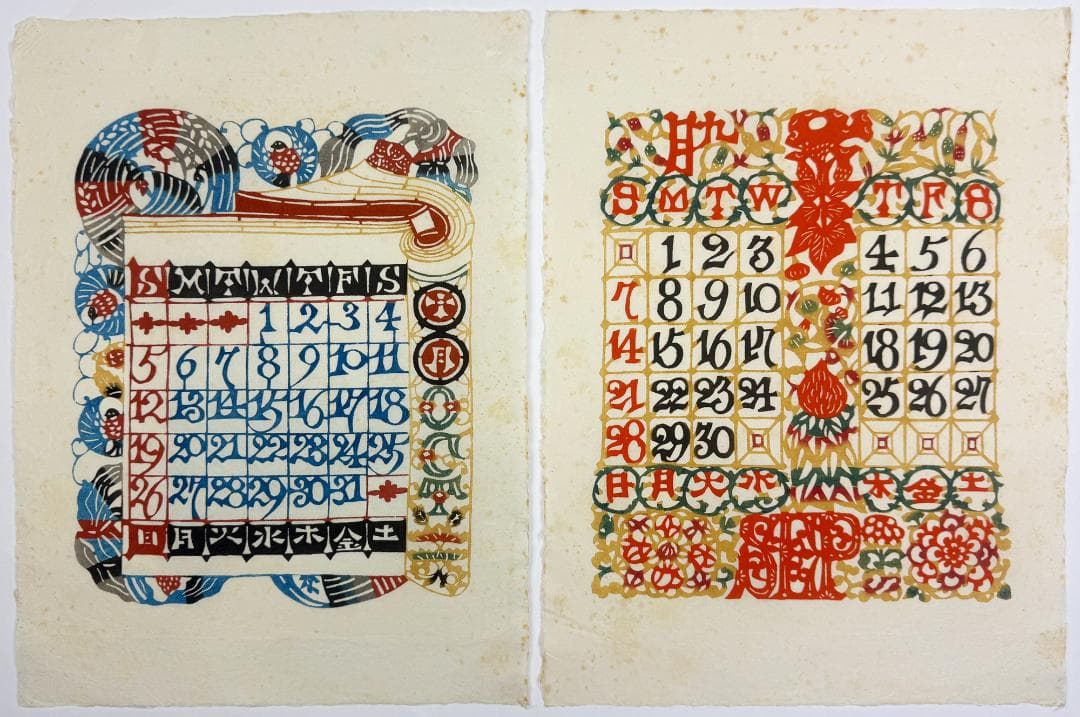 S M T W T F S
1 2 3 4
5 6 7 8 9 10 11
12 13 14 15 16 17 18
19 20 21 22 23 24 25
26 27 28 29 30 31
日 月 火 水 木 金 土
十
月
九月
S M T W T F S
1 2 3 4 5 6
7 8 9 10 11 12 13
14 15 16 17 18 19 20
21 22 23 24 25 26 27
28 29 30
日 月 火 水 木 金 土
SEPT